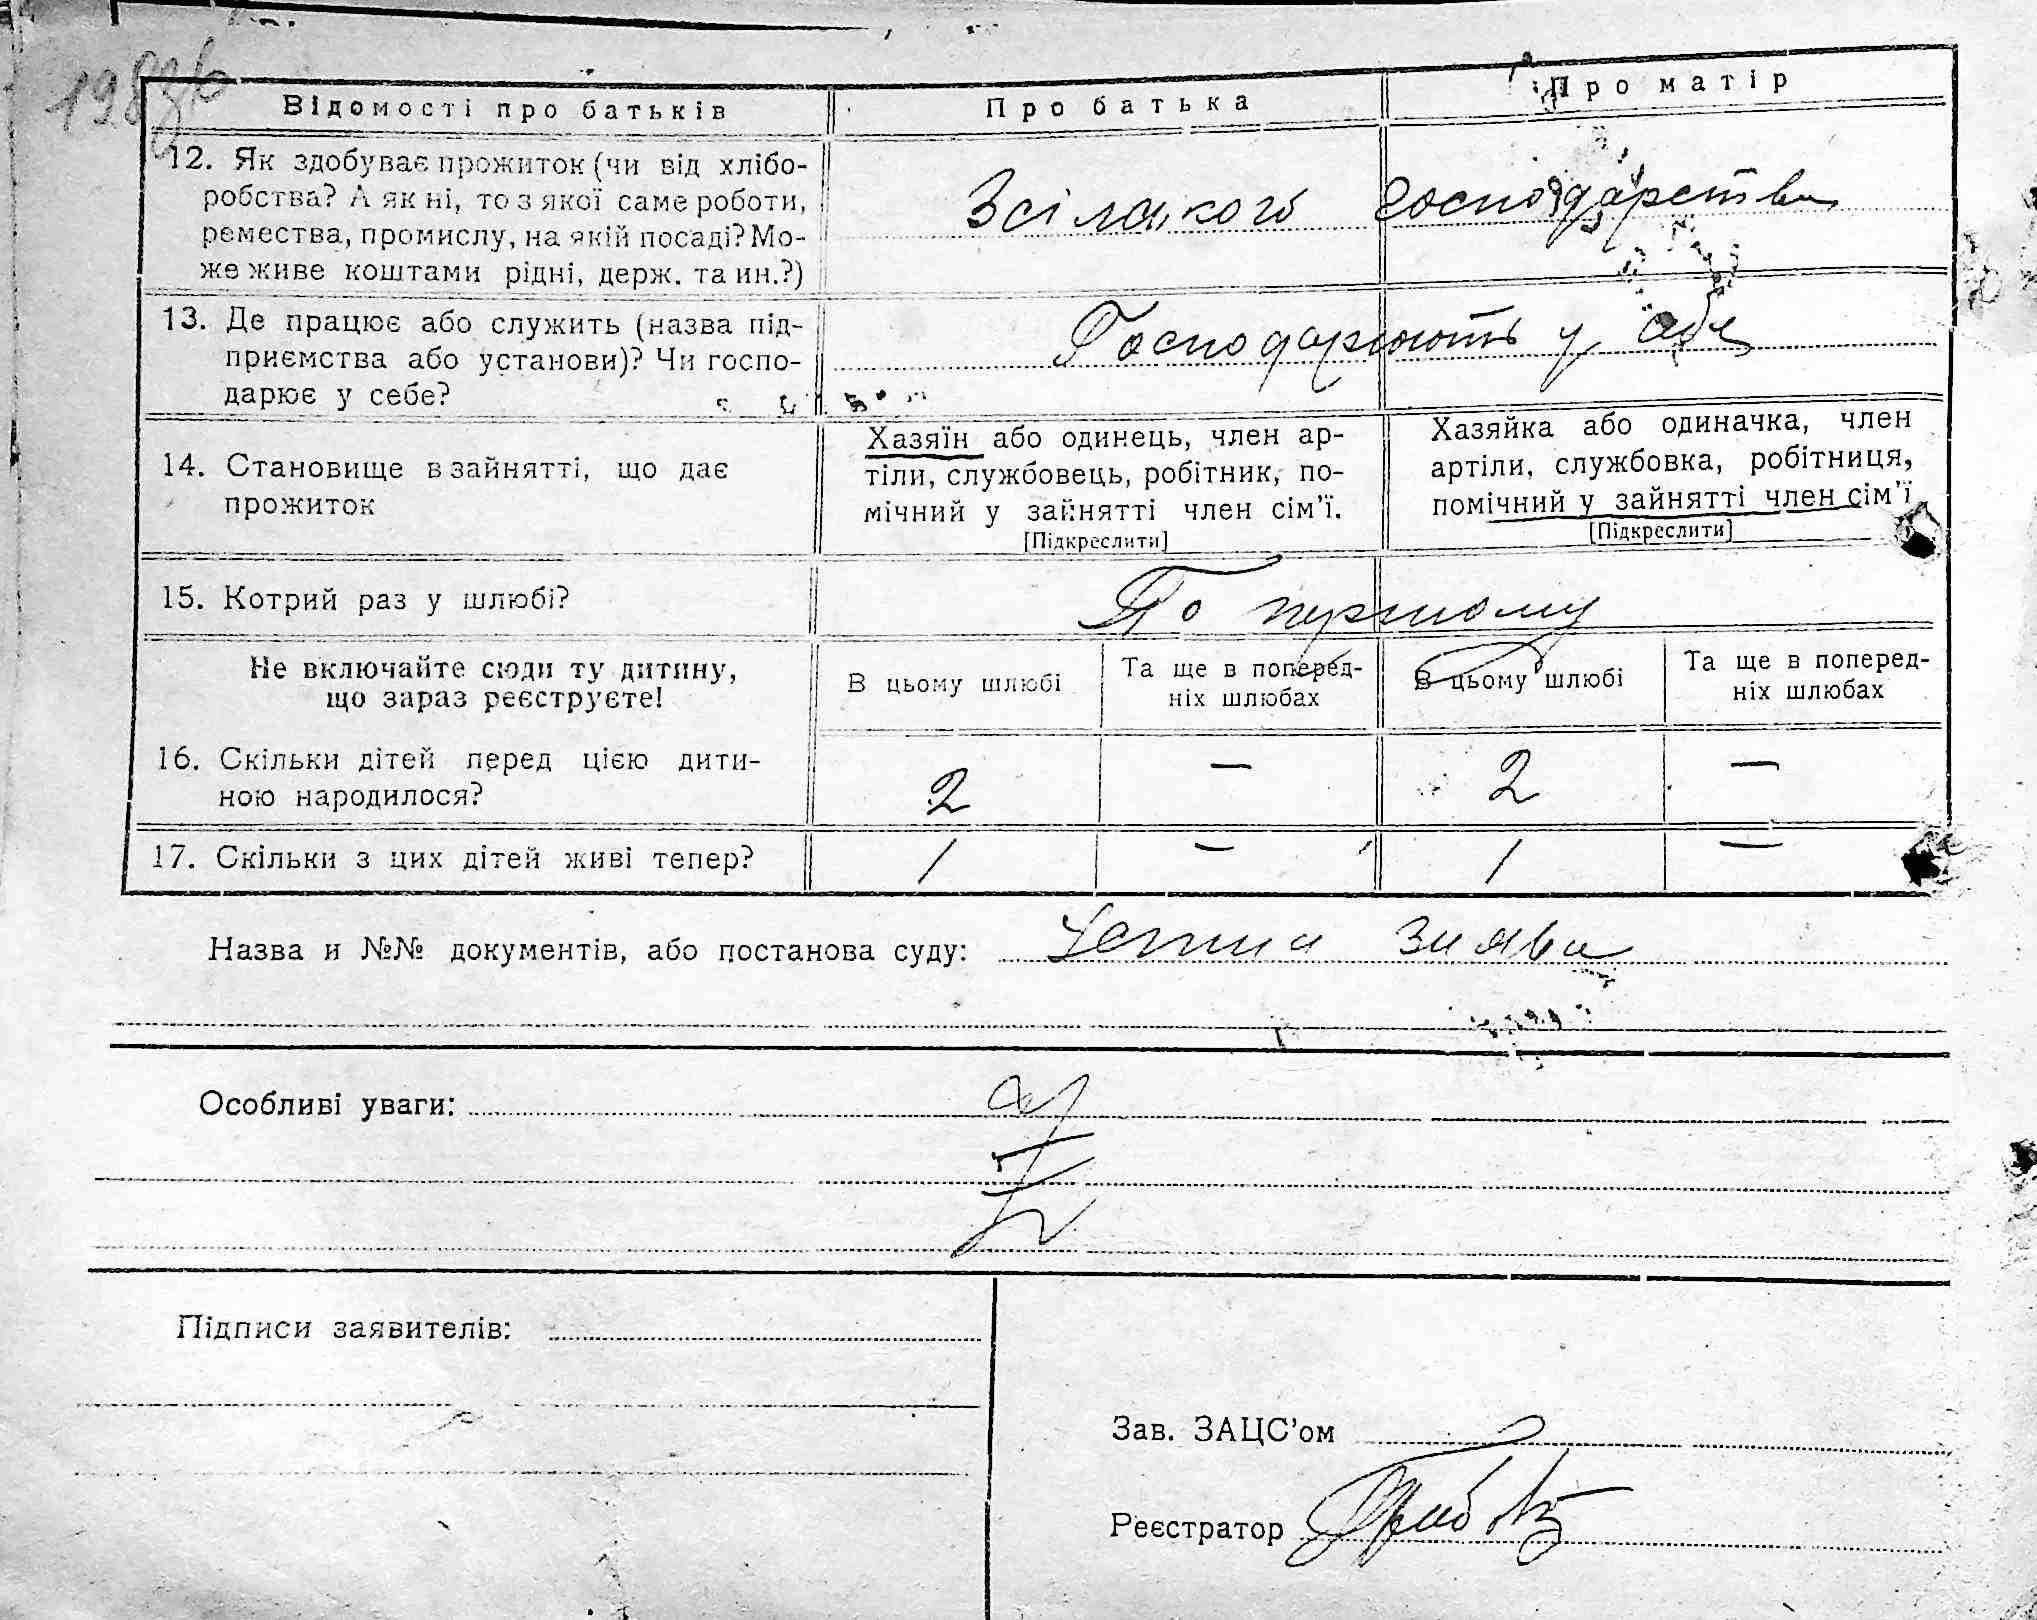 198зв
Відомості про батьків
Про батька
Про матір
12. Як здобуває прожиток (чи від хлібо-
робства? А як ні, то з якої саме роботи,
ремества, промислу, на якій посаді? Мо-
же живе коштами рідні, держ. та ин.?)
Зсілського господарства
13. Де працює або служить (назва під-
приємства або установи)? Чи госпо-
дарює у себе?
Господарюють у себе
14. Становище в зайнятті, що дає
прожиток
Хазяїн або одинець, член ар-
тіли, службовець, робітник, по-
мічний у зайнятті член сім'ї.
[Підкреслити]
Хазяйка або одиначка, член
артіли, службовка, робітниця,
помічний у зайнятті член сім'ї
[Підкреслити]
15. Котрий раз у шлюбі?
По першому
Не включайте сюди ту дитину,
що зараз реєструєте!
В цьому шлюбі
Та ще в поперед-
ніх шлюбах
В цьому шлюбі
Та ще в поперед-
ніх шлюбах
16. Скільки дітей перед цією дити-
ною народилося?
2 — 2 —
17. Скільки з цих дітей живі тепер?
1 — 1 —
Назва и №№ документів, або постанова суду: заява
Особливі уваги:
Підписи заявителів:
Зав. ЗАЦС'ом
Реєстратор